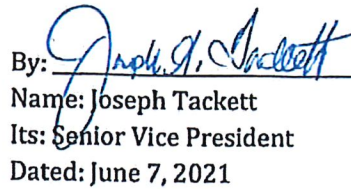 By: Joseph A. Tackett
Name: Joseph Tackett
Its: Senior Vice President
Dated: June 7, 2021